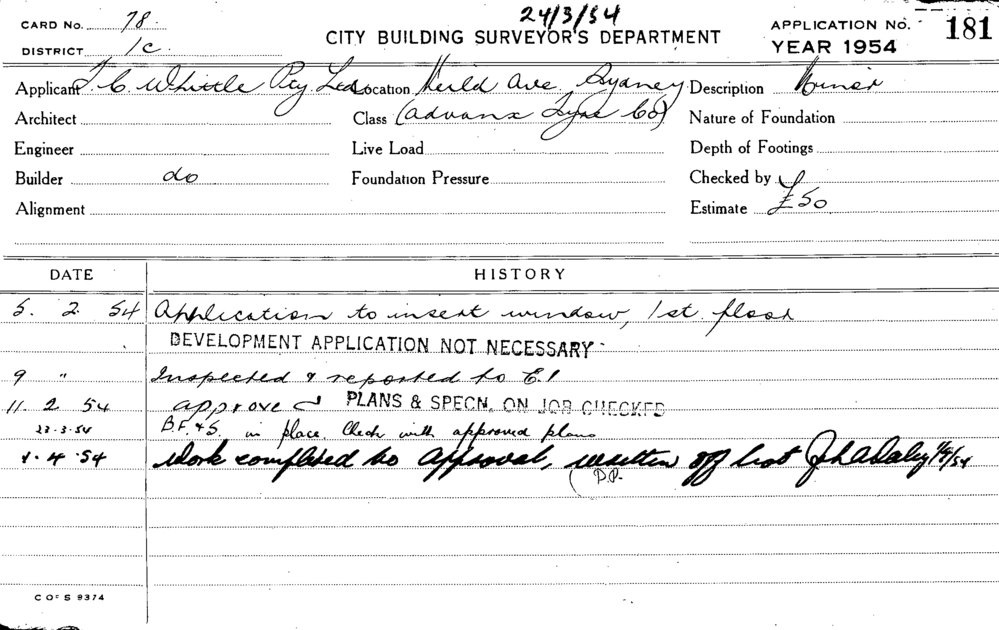 24/3/54
CARD No. 78. CITY BUILDING SURVEYOR'S DEPARTMENT APPLICATION No. 181
DISTRICT 1C YEAR 1954
Applicant T. C. Whittle Pty Ltd Location Ave Sydney Description Minor
Architect Class (Advanx Tyre Co) Nature of Foundation
Engineer Live Load Depth of Footings
Builder do Foundation Pressure Checked by
Alignment Estimate £50
DATE HISTORY
5. 2. 54 Application to insert window, 1st floor
DEVELOPMENT APPLICATION NOT NECESSARY
9 " Inspected & reported to E.I
11. 2 54 approved PLANS & SPECN. ON JOB CHECKED
23.3.54 B.F.&S. in place. Check with approved plans
1. 4. 54 Work completed to approval, written off list
D.P.
C OF S 9374